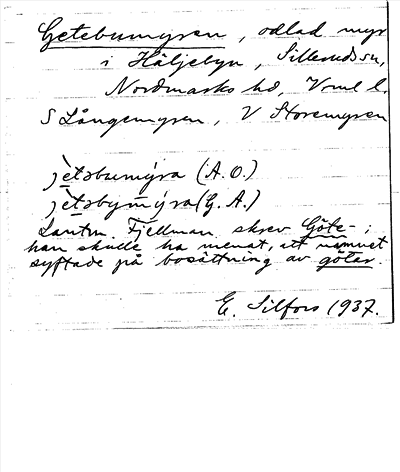 Getebumyren, odlad myr
i Häljebyn, Sillerudssn,
Nordmarks hd, Vrml l.
S Långemyren, V Storemyren
jètəbumýra (A. O.)
jètəbymýra (G. A.)
Lantm. Fjellman skrev Göte- ;
han skulle ha menat, att namnet
syftade på bosättning av götar.
E. Silfors 1937.